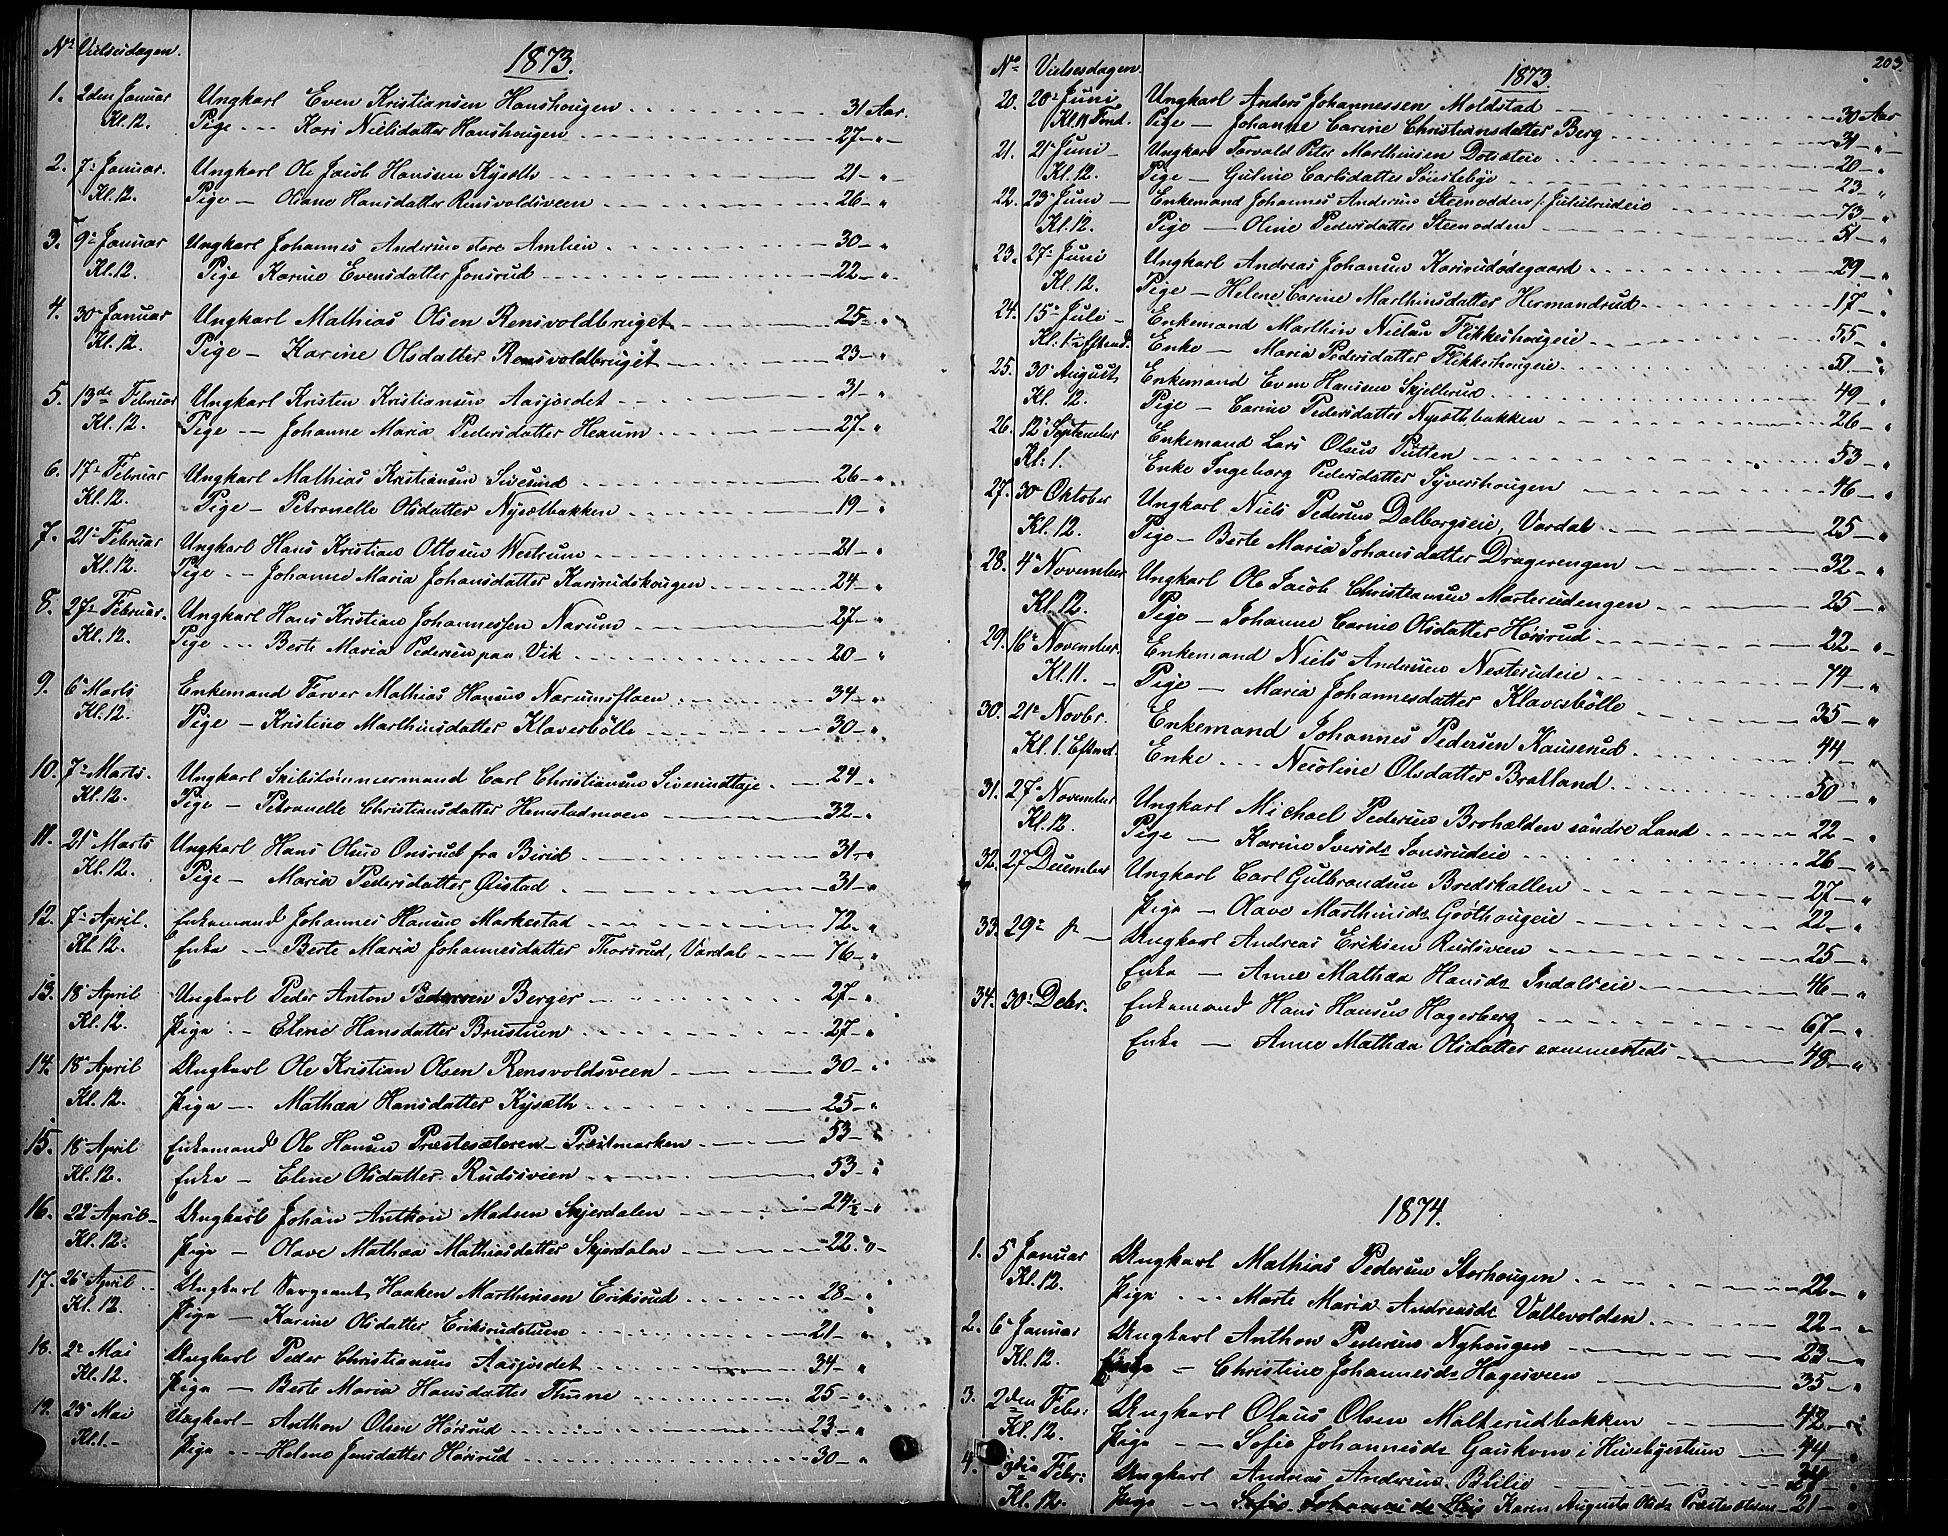 No Vielsesdagen.
1873.
1. 2den Januar Ungkarl Even Kristiansen Haushougen 31 Aar.
Kl. 12. Pige Kari Nielsdatter Haushougen 27 "
2. 7de Januar. Ungkarl Ole Jacob Hansen Kysæth 21 "
Kl. 12. Pige Oliane Hansdatter Rensvoldsveen 26 "
3. 9de Januar Ungkarl Johannes Andersen store Amlien 30 "
Kl. 12. Pige Karine Evensdatter Jonsrud 22 "
4. 30te Januar Ungkarl Mathias Olsen Rensvoldbruget 25 "
Kl. 12. Pige Karine Olsdatter Rensvoldbruget 23 "
5. 13de Februar Ungkarl Kristen Kristiansen Aasjordet 31 "
Kl. 12. Pige Johanne Maria Pedersdatter Hexum 27 "
6. 17de Februar Ungkarl Mathias Kristiansen Sivesind 26 "
Kl. 12. Pige Petronelle Olsdatter Nysætbakken 19 "
7. 21de Februar Ungkarl Hans Kristian Ottosen Westrum 21 "
Kl. 12. Pige Johanne Maria Johansdatter Karirudshougen 24 "
8. 27de Februar. Ungkarl Hans Kristian Johannessen Narum 27 "
Kl. 12. Pige Berte Maria Pedersen paa Vik 20 "
9. 6te Marts Enkemand Farver Mathias Hansen Narumsfloen 34 "
Kl. 12. Pige Kristine Marthinsdatter Klaverbölle 30 "
10. 7de Marts. Ungkarl Skibstömmermand Carl Christiansen Sivesindhaje 24 "
Kl. 12. Pige Petronelle Christiansdatter Hemstadmoen 32 "
11. 21de Marts Ungkarl Hans Olsen Onsrud fra Birid 31 "
Kl. 12. Pige Maria Pedersdatter Øistad 31 "
12. 7de April. Enkemand Johannes Hansen Markestad 72 "
Kl. 12. Enke Berte Maria Johannesdatter Thorsrud, Vardal 76 "
13. 18de April Ungkarl Peder Anton Pedersen Berger 27 "
Kl. 12. Pige Eline Hansdatter Brustuen 27 "
14. 18de April Ungkarl Ole Kristian Olsen Rensvoldsveen 30 "
Kl. 12. Pige Mathea Hansdatter Kysæth 25 "
15. 18de April Enkemand Ole Hansen Præstesæteren Præstmarken 53 "
Kl. 12. Enke Eline Olsdatter Rudsveen 53 "
16. 22de April Ungkarl Johan Anthon Madsen Skjerdalen 24½ "
Kl. 12. Pige Olave Mathea Mathiasdatter Skjerdalen 22 "
17. 26de April Ungkarl Sargeant Haaken Marthinsen Eriksrud 28 "
Kl. 12. Pige Karine Olsdatter Eriksrudstuen 21 "
18. 2de Mai Ungkarl Peder Christiansen Aasjordet 34 "
Kl. 12. Pige Berte Maria Hansdatter Thune 25 "
19. 25 Mai Ungkarl Anthon Olsen Hörsrud 23 "
Kl. 1. Pige Helene Jensdatter Hörsrud 30 "
203
No Vielsesdagen.
1873
20. 20de Juni Ungkarl Anders Johannessen Moldstad 30 Aar
Kl 11 Fmd. Pige Johanne Carine Christiansdatter Berg 31 "
21. 21de Juni Ungkarl Torvald Peter Marthinsen 20 "
Kl. 12. Pige Guline Carlsdatter Sönsteby 23 "
22. 23de Juni Enkemand Johannes Andersen Steenodden 73 "
Kl. 12. Pige Oline Pedersdatter Steenodden 51 "
23. 27de Juni Ungkarl Andreas Johansen Karirudødegaard 29 "
Kl. 12. Pige Helene Carine Marthinsdatter Hermandrud 17 "
24. 15de Juli Enkemand Marthin Nielsen Flikkeshougeie 55 "
Kl. 1 Eftmd. Enke Maria Pedersdatter Flikkeshougeie 51 "
25. 30te August Enkemand Even Hansen Skjellerud 49 "
Kl. 12. Pige Carine Pedersdatter Nysethbakken 26 "
26. 12te September Enkemand Lars Olsen Putten 53 "
Kl: 1. Enke Ingeborg Pedersdatter Syvershougen 46 "
27. 30te Oktober Ungkarl Niels Pedersen Dalborgseie, Vardal 25 "
Kl. 12. Pige Berte Maria Johansdatter Dragerengen 32 "
28. 4de November Ungkarl Ole Jacob Christiansen Marterudengen 25 "
Kl. 12. Pige Johanne Carine Olsdatter Hörsrud 22 "
29. 16de November. Enkemand Niels Andersen Nesterudeie 74 "
Kl. 11. Pige Maria Johannesdatter Klaverbölle 35 "
30. 21de Novbr. Enkemand Johannes Pedersen Kauserud 44 "
Kl. 1. Eftmd. Enke Nicoline Olsdatter Bratland 50 "
31. 27de November Ungkarl Michael Pedersen Brohalden söndre Land 22 "
Kl. 12. Pige Karine Iversdr Jonsrudeie 26 "
32. 27 December Ungkarl Carl Gulbrandsen Bredskallen 27 "
Pige Olave Marthinsdr Gröthougeie 22 "
33. 29de Ungkarl Andreas Eriksen Rudsveen 25 "
Enke Anne Mathea Hansdr Indalseie 46 "
34. 30te Debr. Enkemand Hans Hansen Hagerberg 67 "
Enke Anne Mathea Olsdatter sammesteds 48 "
1874.
1. 5 Januar Ungkarl Mathias Pedersen Storhougen 22 "
Kl. 12. Pige Marte Maria Andreasdr Vattevolden 22 "
2. 6te Januar Ungkarl Anthon Pedersen Nyhougen 23 "
Kl. 12. Christine Johannesdr Hagesveen 35 "
3. 2den Febr: Ungkarl Olaus Olsen Malterudbakken 42 "
Kl. 12. Pige Sofie Johannesdr Gaukom i Hivebystuen 44 "
4. 3die Febr: Ungkarl Andreas Andersen Blilie 24 "
Kl. 12. Pige Karen Augusta Olsdr 21 "